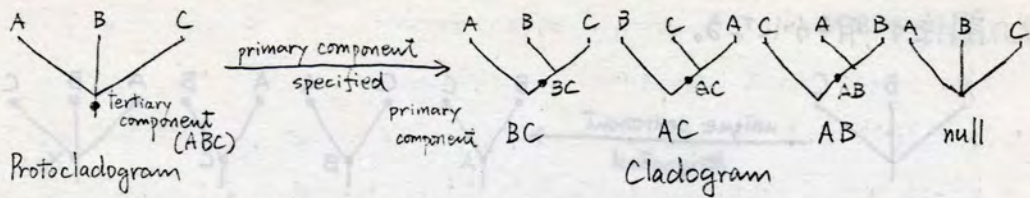 A B C
tertiary
component
(ABC)
Protocladogram
primary component
specified
primary
component
A B C
BC
BC
B C A
AC
AC
C A B
AB
AB
A B C
null
Cladogram